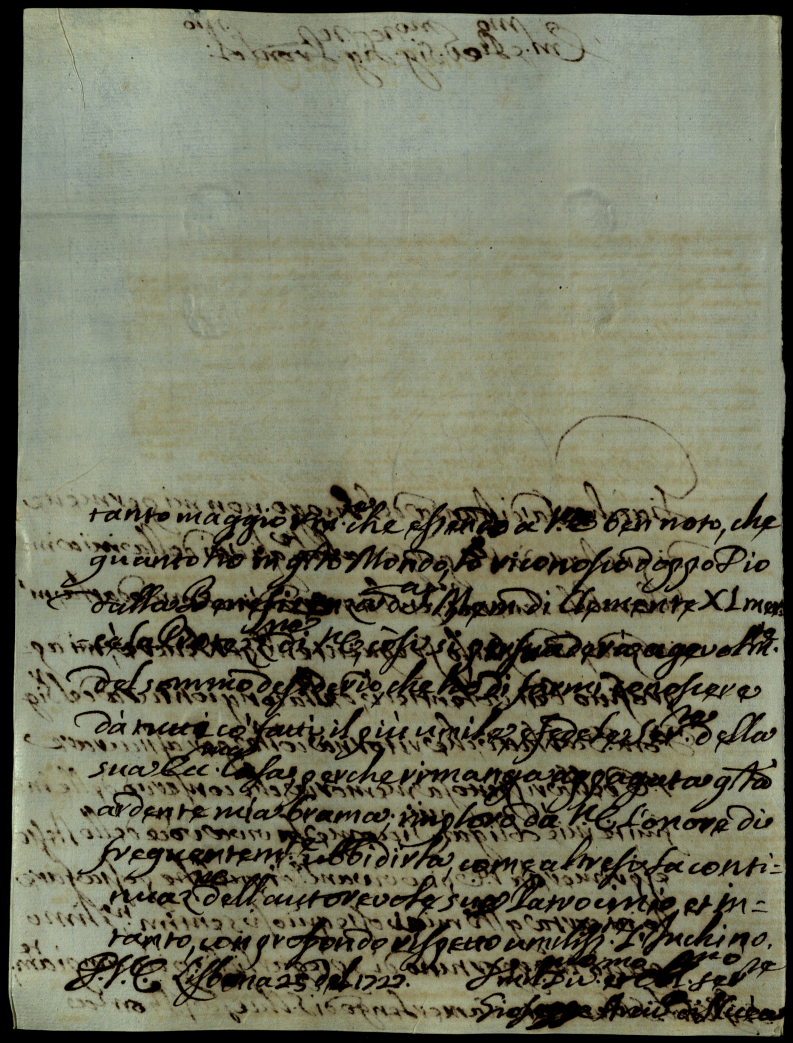 tanto maggiorm.te che essendo a V.E. ben noto, che
quanto ho in q.sto Mondo, lo riconosco doppo Dio
dalla Beneficenza della Mem. di Clemente XI
la di V.E. così si persuaderà agevolm.te
del sommo desiderio che ho di farmi conoscere
da tutti co' fatti il più umile, e fedele ser.re della
sua Ecc.ma Casa, e perche rimanga appagata q.sta
ardente mia brama, imploro da V.E. l'onore di
frequentem.te ubbidirla, come altresì la conti=
nuaz.ne dell'autorevole suo Patrocinio, et in=
tanto, con profondo rispetto umiliss. L'Inchino.
Di V.E. Lisbona 25 del 1722.
Umil. Div. et Obl. Ser.re
Giuseppe